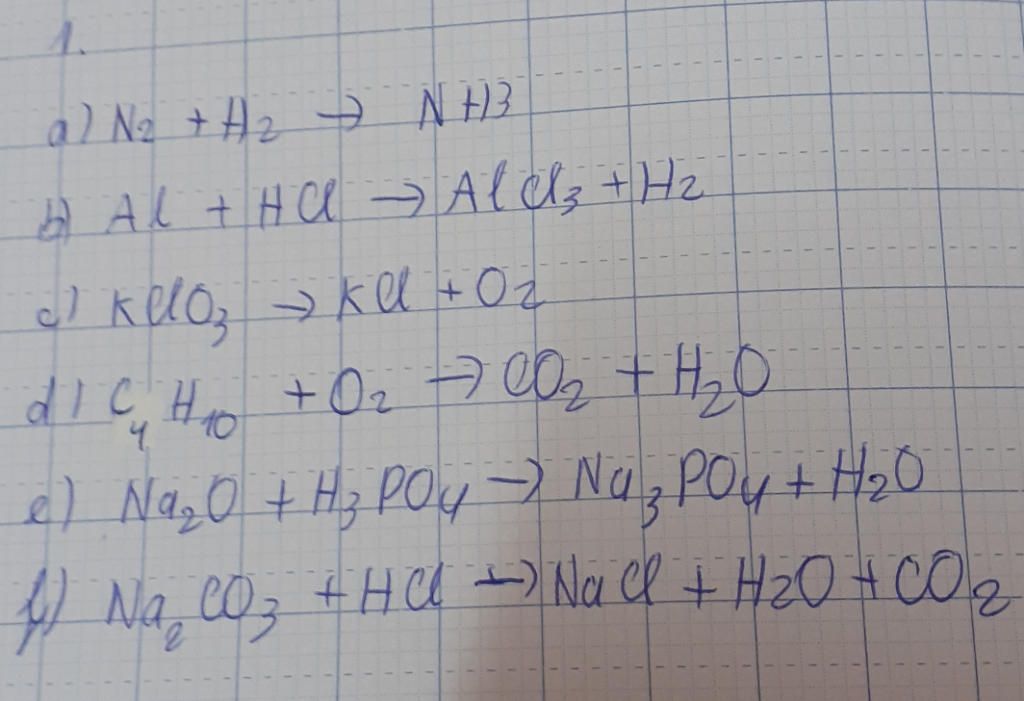 1.
a) N2 + H2 → NH3
b) Al + HCl → AlCl3 + H2
c) KClO3 → KCl + O2
d) C4H10 + O2 → CO2 + H2O
e) Na2O + H3PO4 → Na3PO4 + H2O
f) Na2CO3 + HCl → NaCl + H2O + CO2